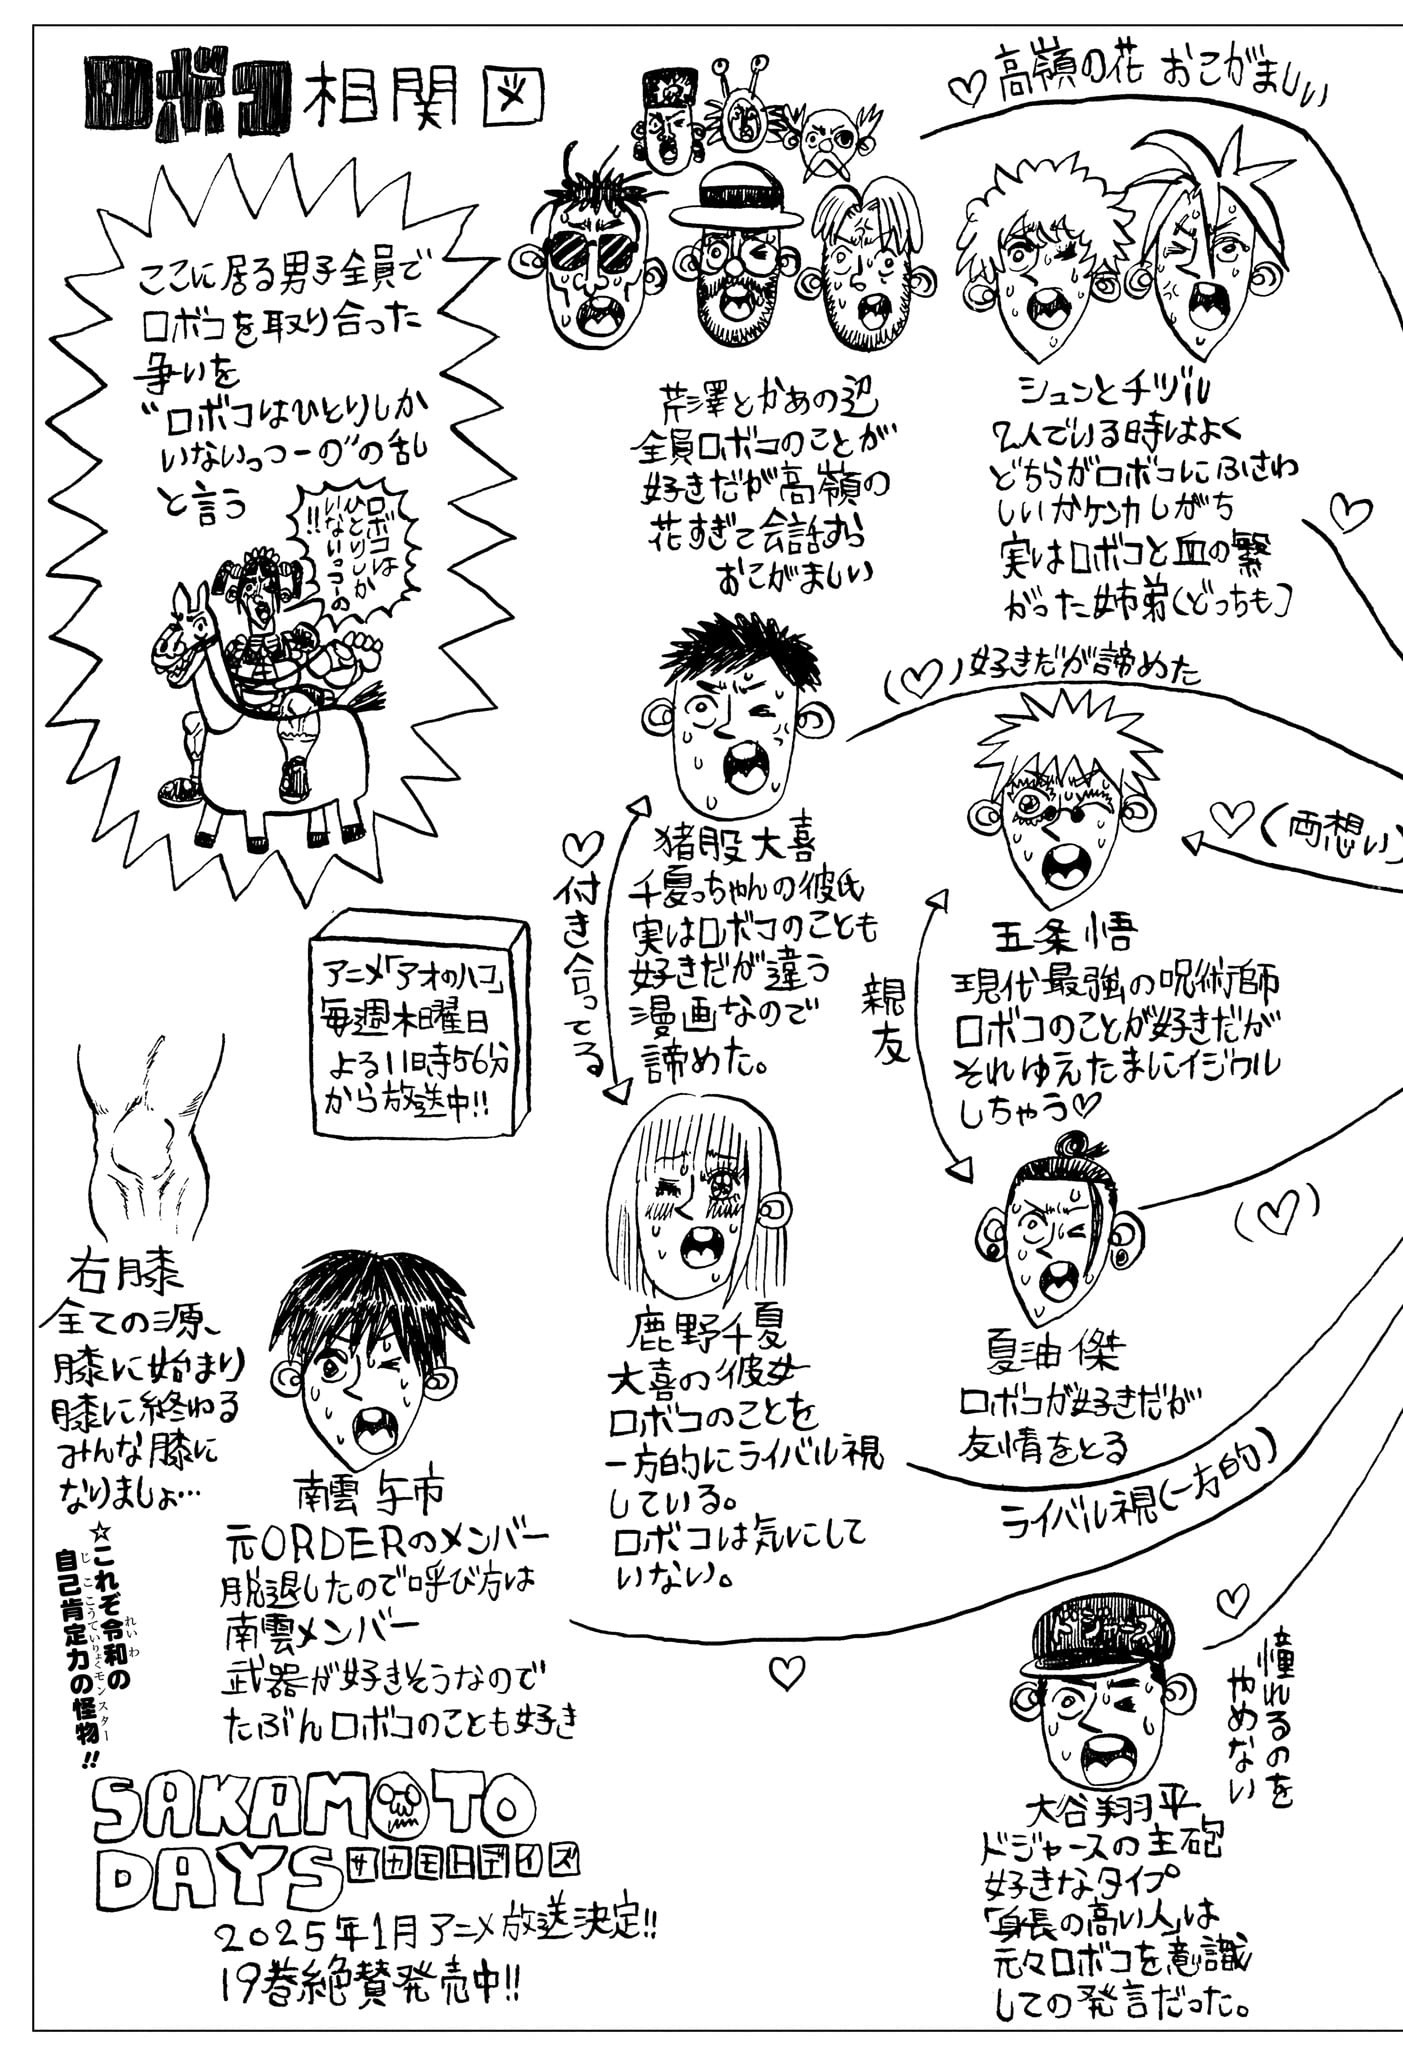 ロボコ相関図
ここに居る男子全員で
ロボコを取り合った
争いを
“ロボコはひとりしか
いないっつーの”の乱
と言う
ロボコは
ひとりしか
いないっつーの
!!
♡高嶺の花 おこがましい
芹澤とかあの辺
全員ロボコのことが
好きだが高嶺の
花すぎて会話すら
おこがましい
シュンとチヅル
2人でいる時はよく
どちらがロボコにふさわ
しいかケンカしがち
実はロボコと血の繋
がった姉弟(どっちも)
♡
(♡)好きだが諦めた
猪股大喜
千夏っちゃんの彼氏
実はロボコのことも
好きだが違う
漫画なので
諦めた。
♡付き合ってる
♡(両想い)
五条悟
現代最強の呪術師
ロボコのことが好きだが
それゆえたまにイジワル
しちゃう♡
親友
アニメ「アオのハコ」
毎週木曜日
よる11時56分
から放送中!!
鹿野千夏
大喜の彼女
ロボコのことを
一方的にライバル視
している。
ロボコは気にして
いない。
夏油傑
ロボコが好きだが
友情をとる
(♡)
ライバル視(一方的)
右膝
全ての源、
膝に始まり
膝に終わる
みんな膝に
なりましょ…
☆これぞ令和の
れいわ
自己肯定力の怪物!!
じここうていりょくモンスター
南雲 与市
元ORDERのメンバー
脱退したので呼び方は
南雲メンバー
武器が好きそうなので
たぶんロボコのことも好き
♡
SAKAMOTO
DAYSサカモトデイズ
2025年1月アニメ放送決定!!
19巻絶賛発売中!!
ドジャース
♡
憧れるのを
やめない
大谷翔平
ドジャースの主砲
好きなタイプ
「身長の高い人」は
元々ロボコを意識
しての発言だった。